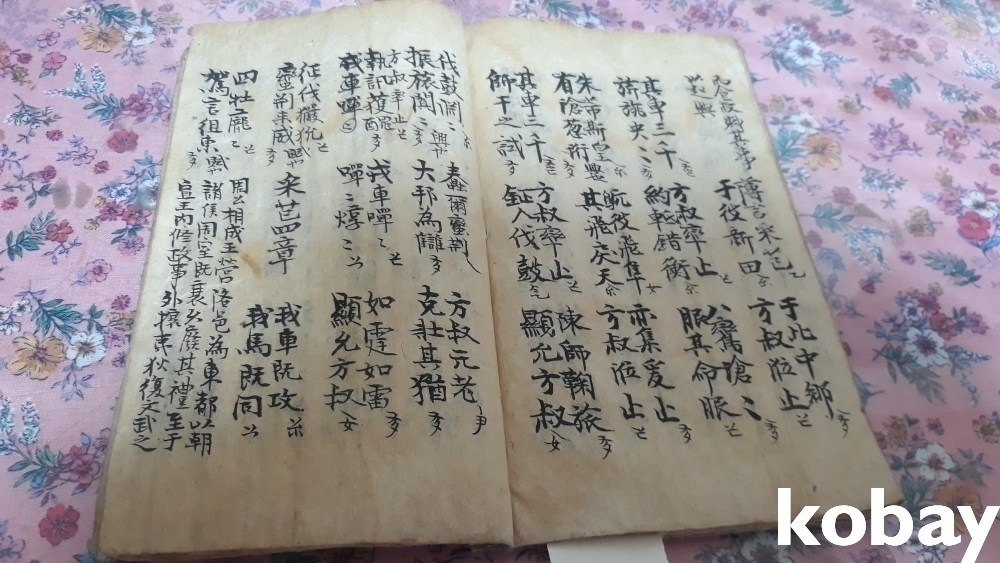 薄言采芑
于彼新田
于此中鄉
方叔涖止
其車三千
旂旐央〻
方叔率止
約軝錯衡
八鸞瑲〻
服其命服
朱芾斯皇
有瑲葱珩
鴥彼飛隼
其飛戾天
亦集爰止
方叔涖止
其車三千
師干之試
方叔率止
鉦人伐鼓
陳師鞠旅
顯允方叔
伐鼓淵〻
振旅闐〻
蠢爾蠻荊
大邦為讎
方叔元老
克壯其猶
方叔率止
執訊獲醜
戎車嘽〻
戎車嘽〻
嘽〻焞〻
如霆如雷
顯允方叔
征伐玁狁
蠻荊来威
采芑四章
我車既攻
我馬既同
四牡龐〻
駕言徂東
周公相成王營洛邑為東都以朝
諸侯周室既衰久廢其禮至于
宣王內修政事外攘夷狄復文武之
kobay